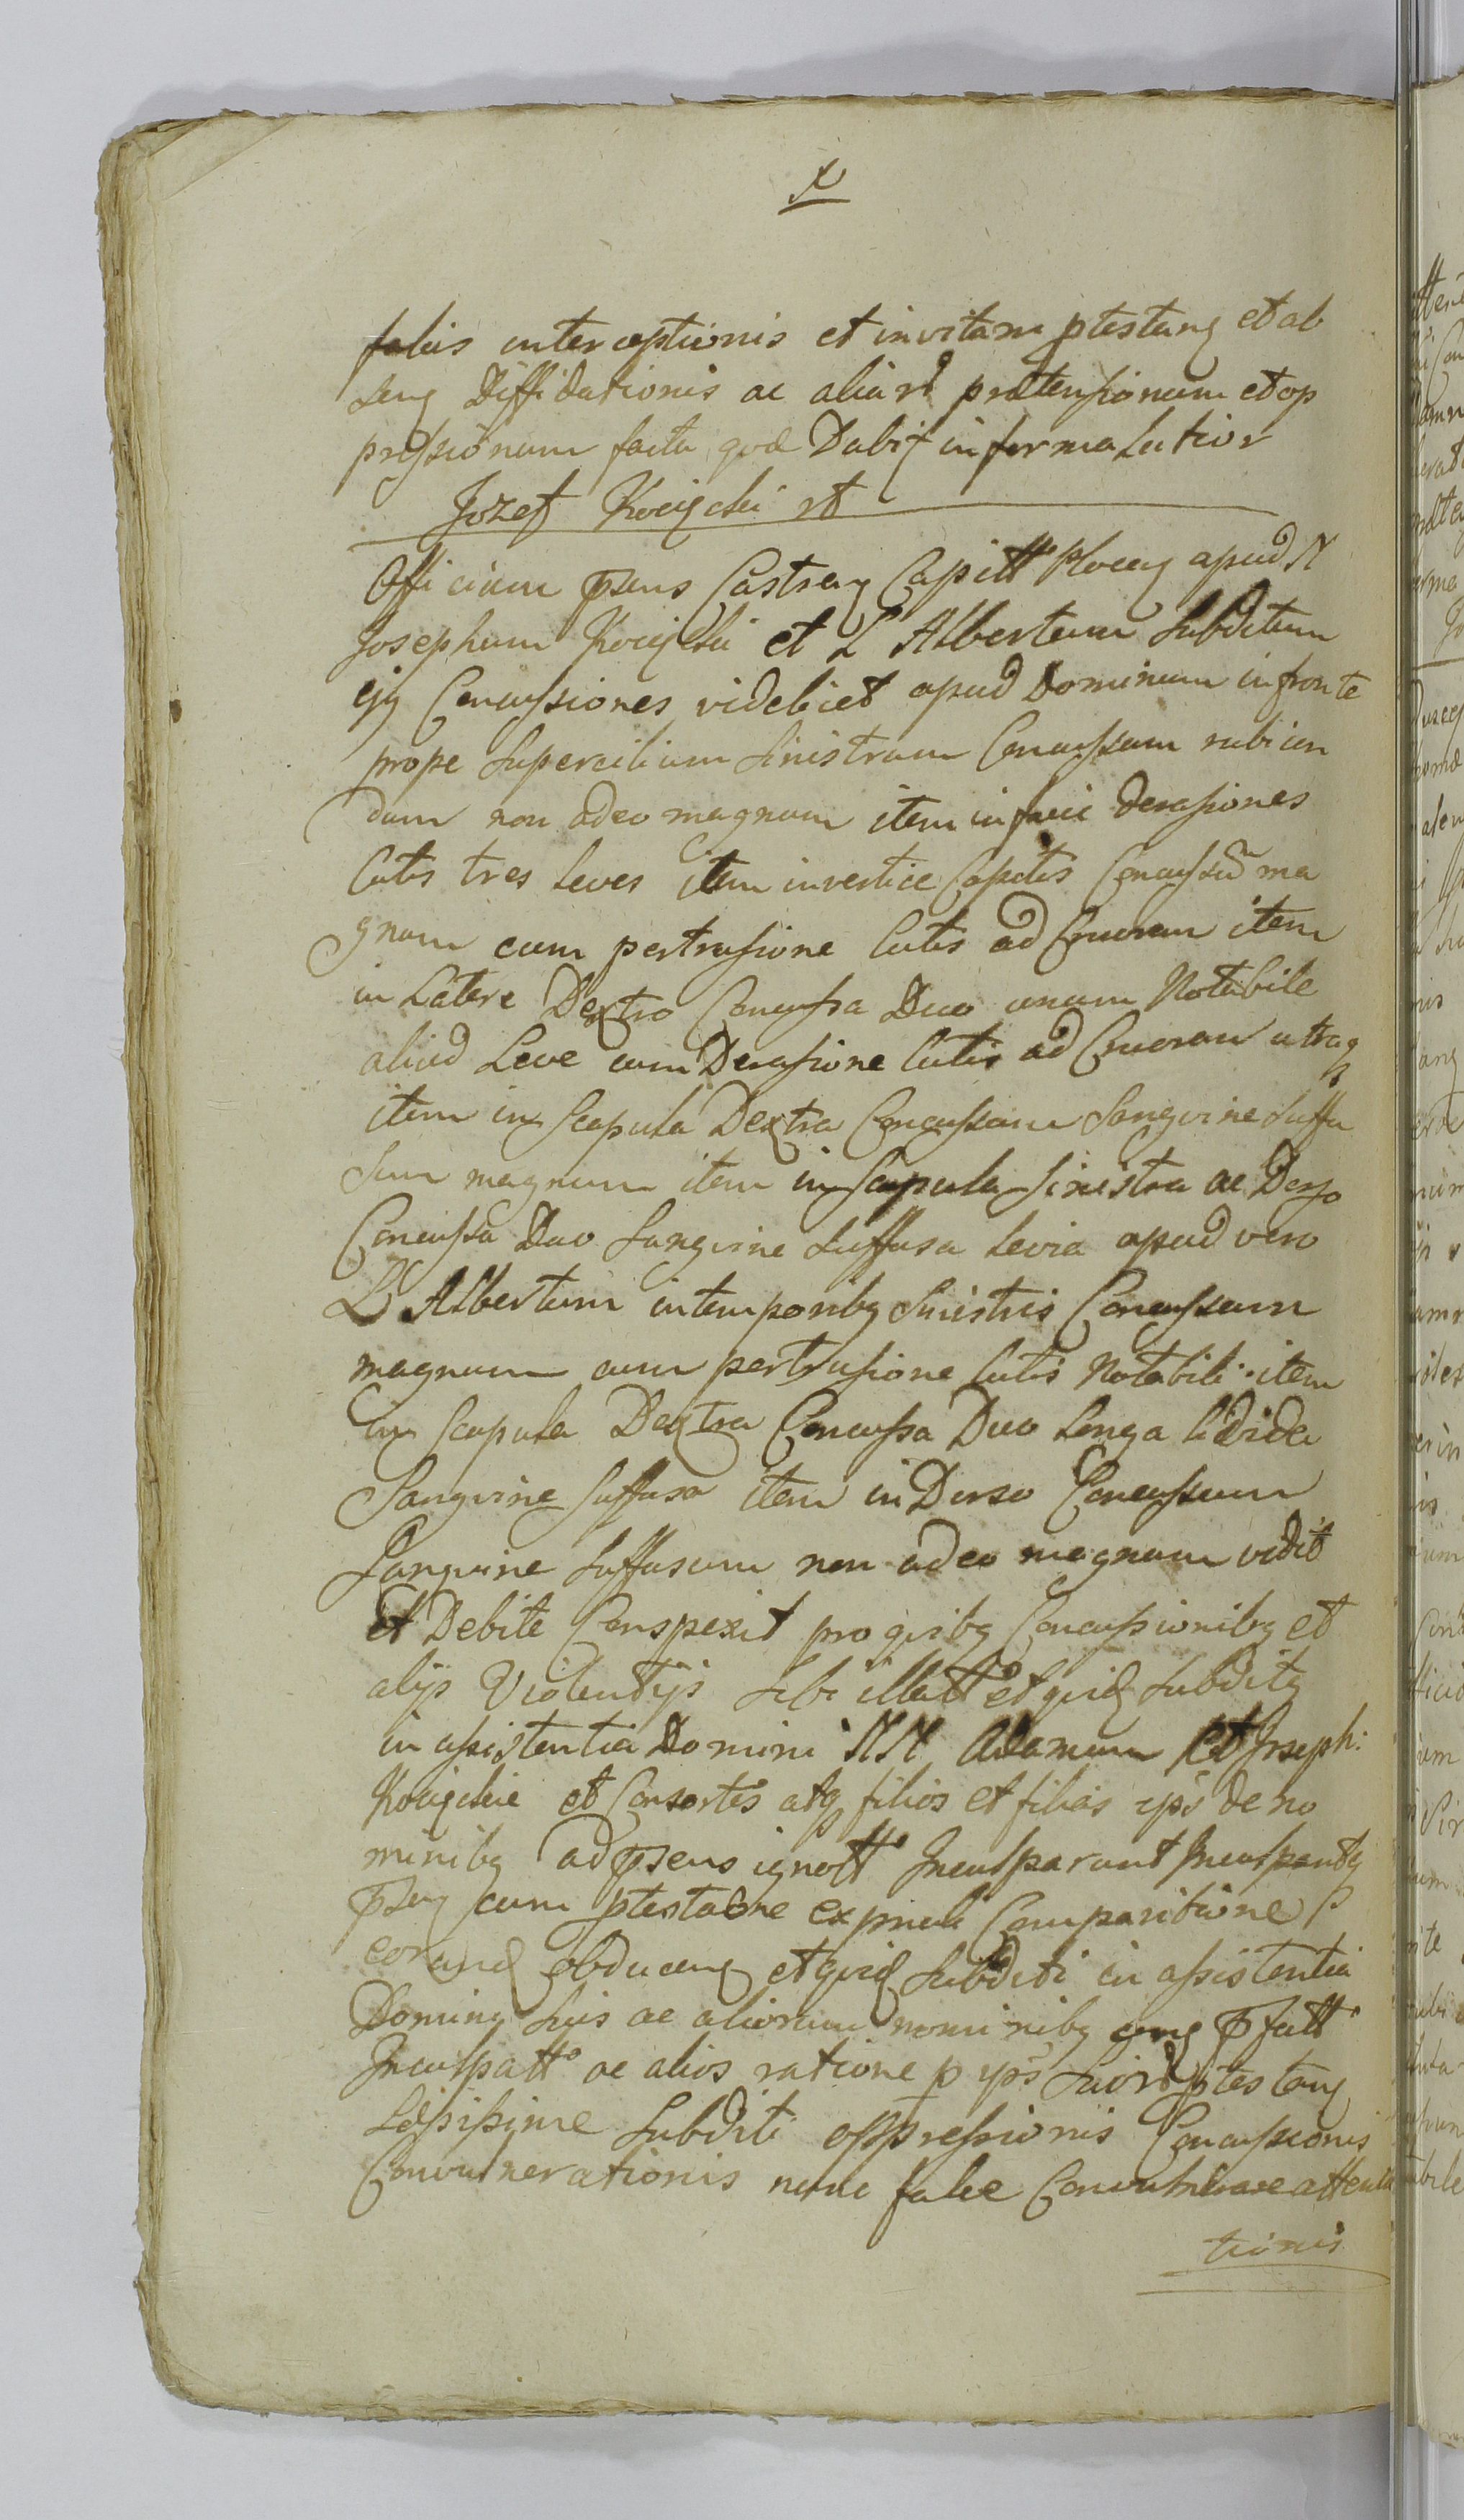 falcis interceptionis et in vitam ptestang et ab
seng Diffidationis ac aliard prætensionum et op
pressionum facta qvæ Dabit in forma Latior
Jozef Kocięcki rt
Officium psens Castren Capitt Plocen apud N
Josephum Kocięcki et L Albertum Subditum
ejg Concussiones videlicet apud Dominum in fronte
prope Supercilium Sinistrum Concussum rubicun
dum non adeo magnum item in facie Derasiones
Cutis tres leves item in vertice Capitis Concussū ma
gnum cum pertrusione Cutis ad Cruorem item
in Latere Dextro Concussa Duo unum Notabile
aliud Leve cum Derasione Cutis ad Cruorem utraq
item in Scapula Dextra Concussum Sangvine Suffu
sum magnum item in Scapula Sinistra ac Dorso
Concussa Duo Sangvine Suffusa Levia apud vero
L Albertum in temporibg Sinistris Concussum
magnum cum pertrusione Cutis Notabili item
in Scapula Dextra Concussa Duo Longa Livida
Sangvine Suffusa item in Dorso Concussum
Sangvine Suffusum non adeo magnum vidit
Et Debite Conspexit pro qvibg Concussionibg et
alijs Violentijs Sibi illatt et qvidē Subditg
in assistentia Domini NN Adamum et Joseph:
Kocięckie et Consortes atq filios et filias ips de no
minibg ad psens ignott Inculparunt Inculpantq
pseng cum ptestaone ex pmeli Comparitione p
eorund obduceng et qvid Subditi in assistentia
Doming Suis ac aliorum nominibg cong pfatt
Inculpatt ac alios ratione p ips Suord ptestang
Læsissime Subditi oppressionis Concussionis
Convulnerationis nunc falce Convulnerare attenta
tionis